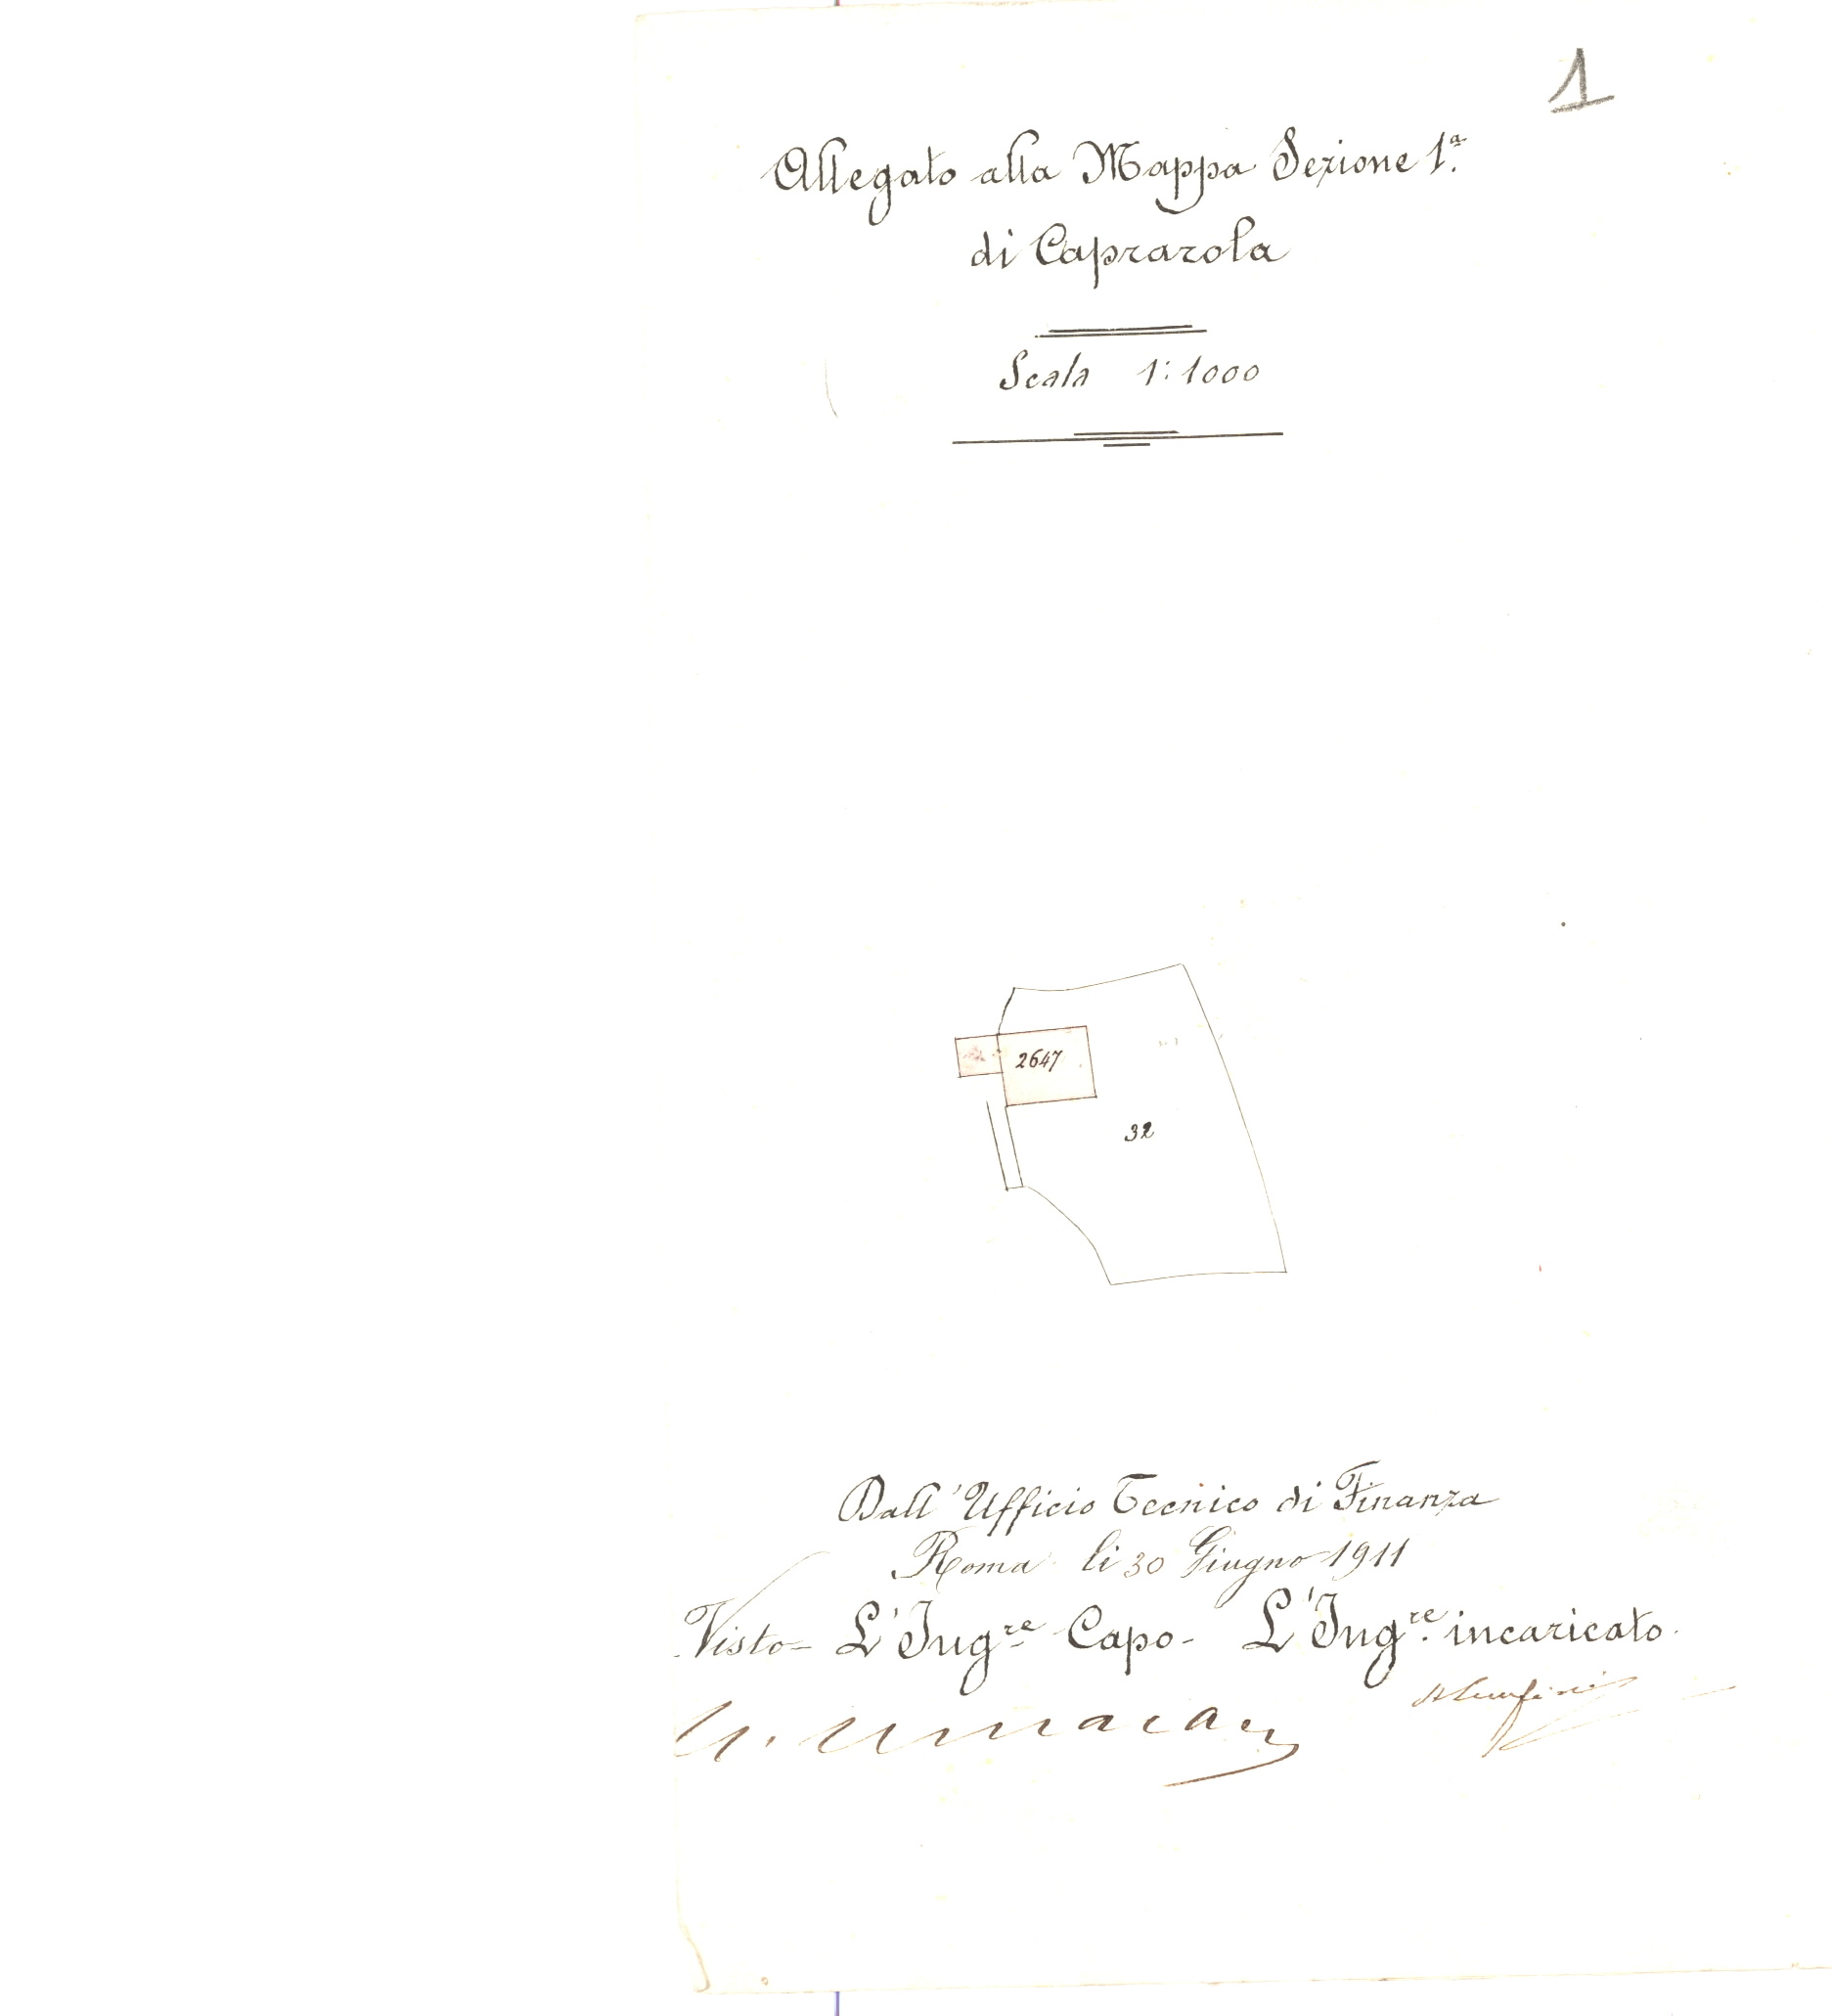 1
Allegato alla Mappa Sezione 1ª.
di Caprarola
Scala 1:1000
2647
32
Dall'Ufficio Tecnico di Finanza
Roma li 30 Giugno 1911
Visto - L'Ingre Capo - L'Ingre incaricato